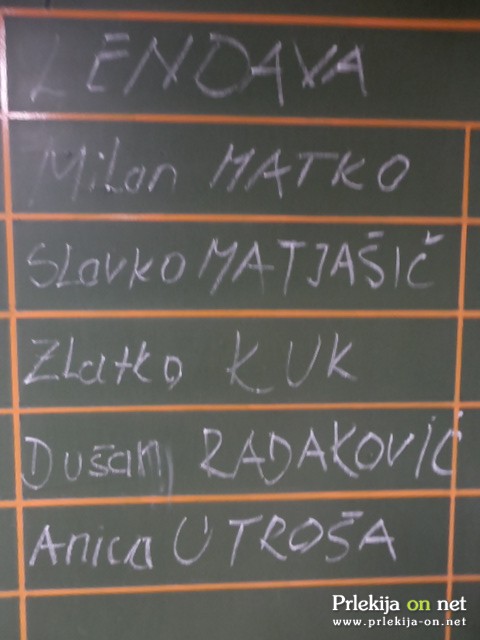 LENDAVA
Milan MATKO
Slavko MATJAŠIČ
Zlatko KUK
Dušan RADAKOVIĆ
Anica UTROŠA
Prlekija on net
www.prlekija-on.net